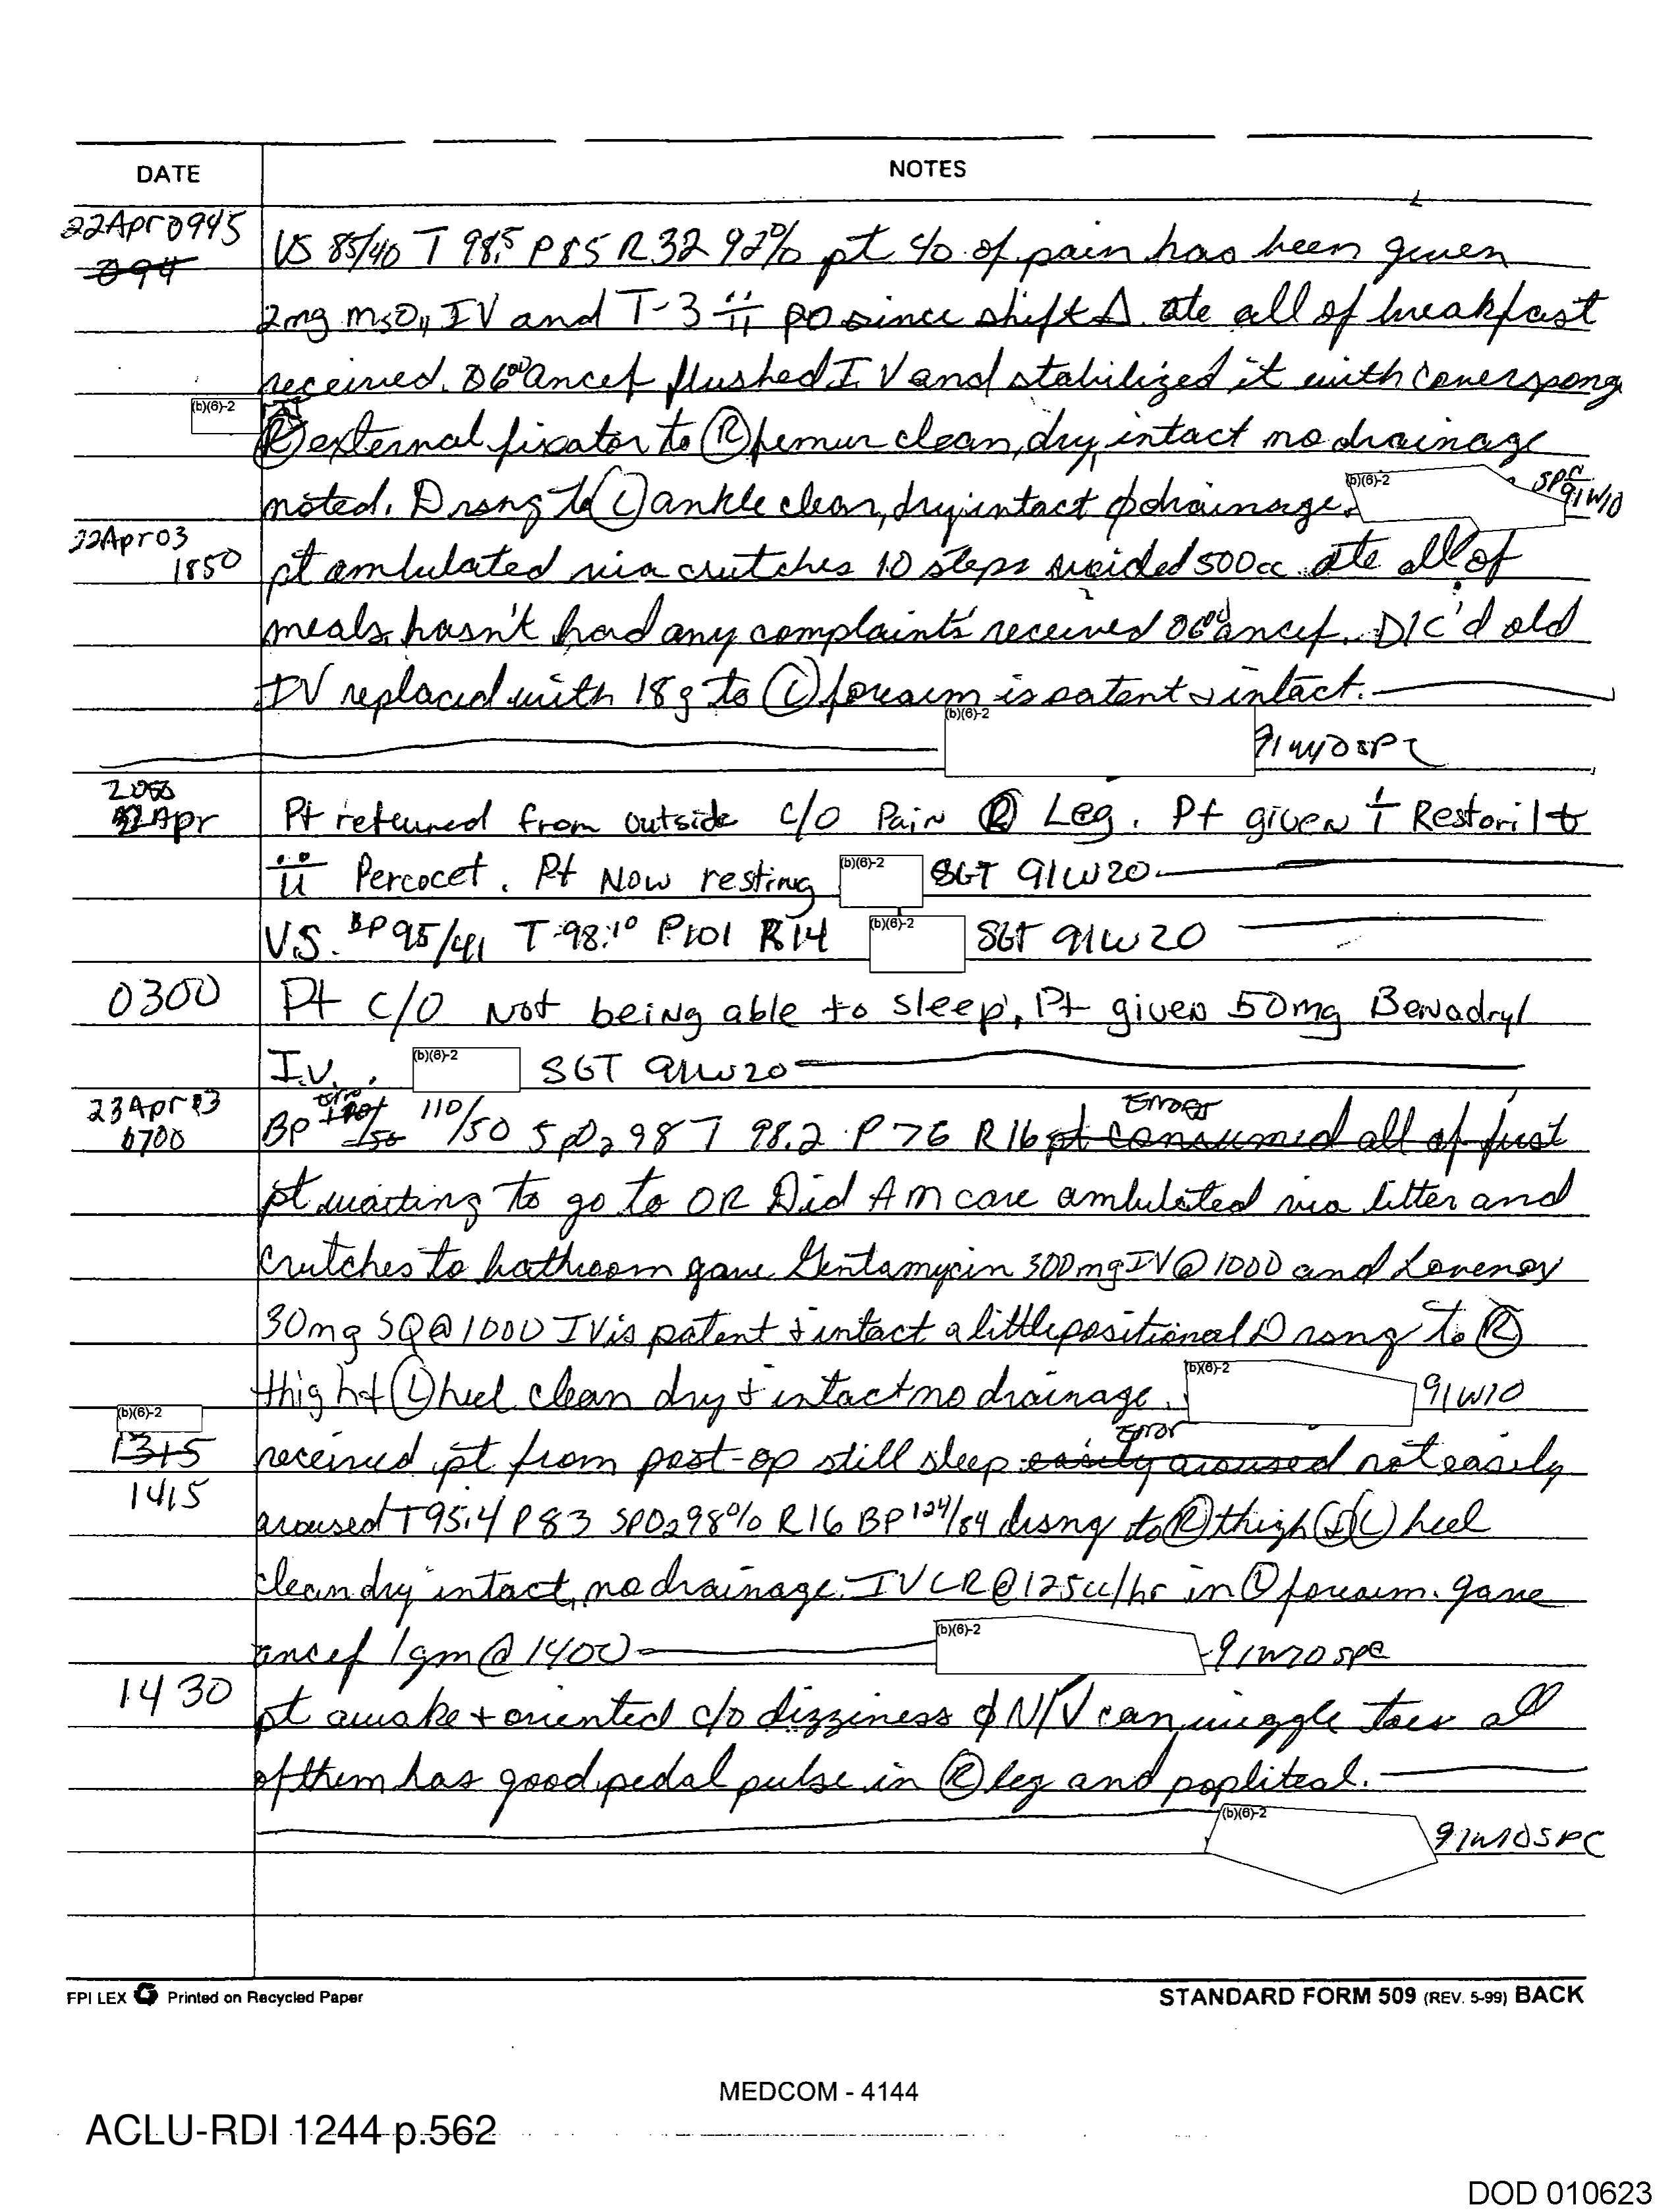 DATE NOTES
22Apr0945 VS 85/40 T 98.5 P85 R32 92% pt c/o of pain has been given
094 2mg MSO4 IV and T-3 ii po since shift Δ. ate all of breakfast
received 0600 ancef flushed IV and stabilized it with coversponge
(b)(6)-2
Ⓡ external fixator to Ⓡ femur clean, dry, intact no drainage
noted. Drsng to Ⓛ ankle clean, dry, intact ϕ drainage. (b)(6)-2 SPC 91W10
22Apr03
1850 pt ambulated via crutches 10 steps voided 500cc ate all of
meals, hasn't had any complaints received 0600 ancef. D/C'd old
IV replaced with 18g to Ⓛ forearm is patent + intact.
(b)(6)-2 91W10 SPC
22Apr Pt returned from outside c/o Pain Ⓡ Leg. Pt given i Restoril +
ii Percocet. Pt Now resting (b)(6)-2 SGT 91W20
V.S. BP 95/41 T-98.1° P101 R14 (b)(6)-2 SGT 91W20
0300 Pt c/o Not being able to sleep, Pt given 50mg Benadryl
I.V. (b)(6)-2 SGT 91W20
error Error
23Apr03
0700 BP 110/50 SpO2 98 T 98.2 P 76 R16 pt consumed all of first
pt waiting to go to OR Did AM care ambulated via litter and
crutches to bathroom gave Gentamycin 300mg IV @ 1000 and Lovenox
30mg SQ @ 1000 IV is patent + intact a little positional Drsng to Ⓡ
thigh + Ⓛ heel clean dry + intact no drainage. (b)(6)-2 91W10
(b)(6)-2
Error
1315 received pt from post-op still sleep easily aroused not easily
1415 aroused T95.4 P83 SPO2 98% R16 BP 124/84 drsng to Ⓡ thigh Ⓛ heel
clean dry intact, no drainage. IV LR @ 125cc/hr in Ⓛ forearm. gave
ancef 1gm @ 1400 (b)(6)-2 91W10 SPC
1430 pt awake + oriented c/o dizziness ϕ N/V can wiggle toes all
of them has good pedal pulse in Ⓡ leg and popliteal.
(b)(6)-2 91W10 SPC
FPI LEX Printed on Recycled Paper STANDARD FORM 509 (REV. 5-99) BACK
MEDCOM - 4144
ACLU-RDI 1244 p.562
DOD 010623